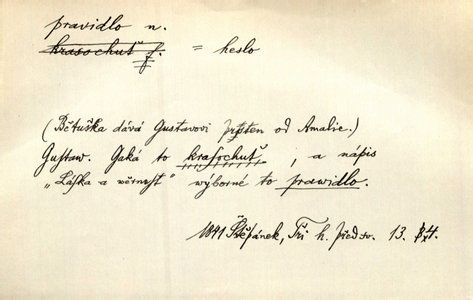 pravidlo n.
krasochuť f. = heslo
(Bětuška dává Gustavovi prsten od Amalie.)
Gustaw. Gaká to krasochuť, a nápis
„Láska a věrnost“ wýborné to prawidlo.
1841 Štěpánek, Tři h. před sv. 13.